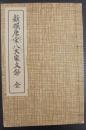 新撰唐宋八大家文鈔 全